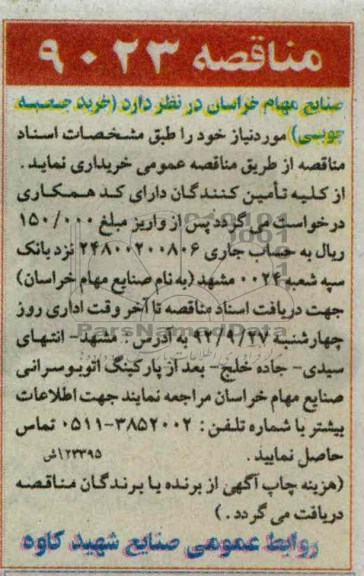 مناقصه ۹۰۲۳
صنایع مهام خراسان در نظر دارد (خرید جعبه
چوبی) موردنیاز خود را طبق مشخصات اسناد
مناقصه از طریق مناقصه عمومی خریداری نماید.
از کلیه تأمین کنندگان دارای کد همکاری
درخواست می گردد پس از واریز مبلغ ۱۵۰/۰۰۰
ریال به حساب جاری ۲۴۸۰۰۲۰۰۸۰۶ نزد بانک
سپه شعبه ۰۰۲۴ مشهد (به نام صنایع مهام خراسان)
جهت دریافت اسناد مناقصه تا آخر وقت اداری روز
چهارشنبه ۹۲/۹/۲۷ به آدرس: مشهد- انتهای
سیدی- جاده خلج- بعد از پارکینگ اتوبوسرانی
صنایع مهام خراسان مراجعه نمایند جهت اطلاعات
بیشتر با شماره تلفن: ۳۸۵۲۰۰۲-۰۵۱۱ تماس
حاصل نمایید. ۱۲۳۳۹۵ش
(هزینه چاپ آگهی از برنده یا برندگان مناقصه
دریافت می گردد.)
روابط عمومی صنایع شهید کاوه
ParsNamadData